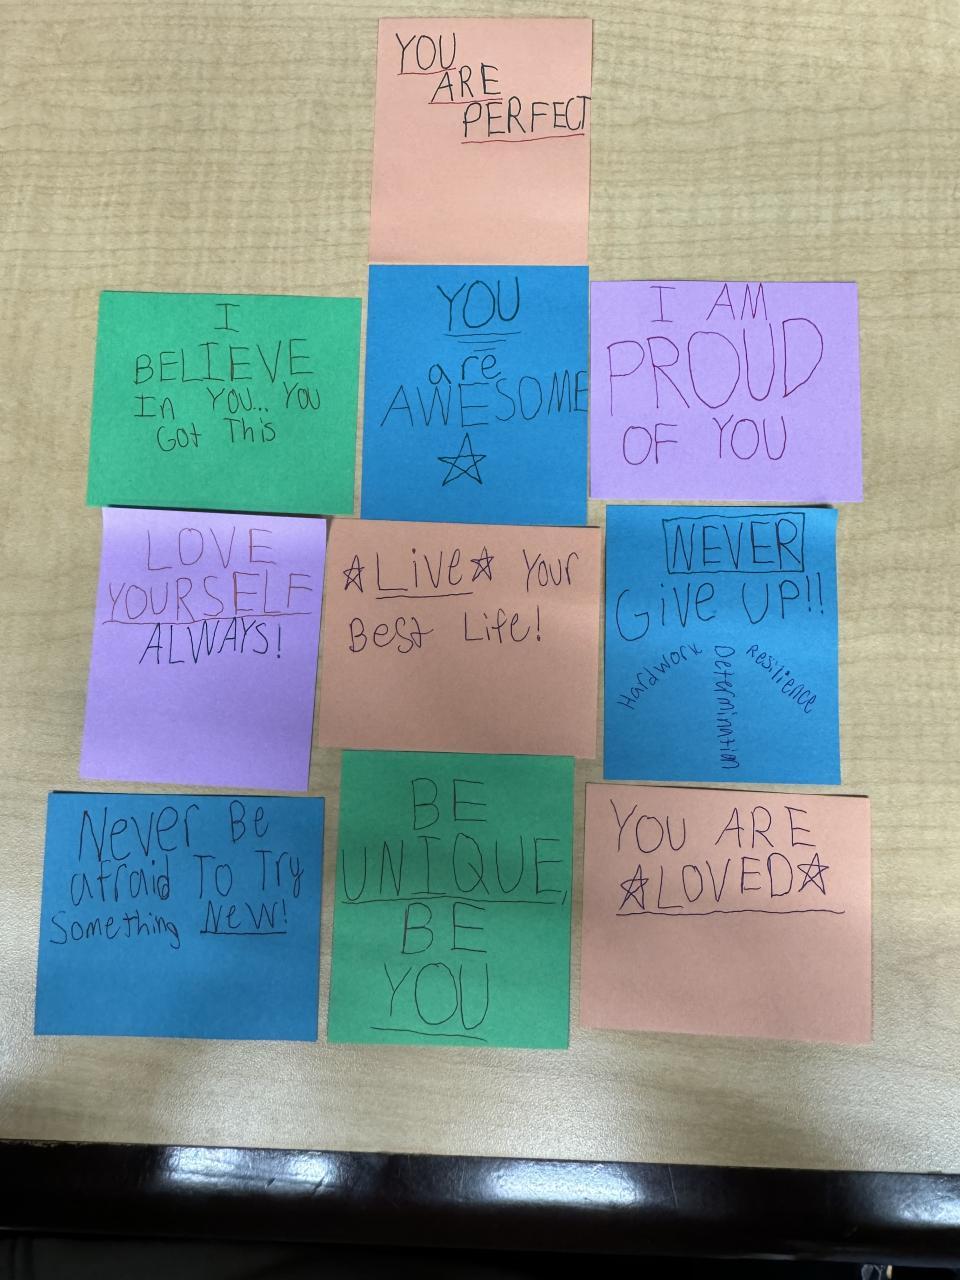 YOU
ARE
PERFECT
I
BELIEVE
In YOU... YOU
Got This
YOU
are
AWESOME
I AM
PROUD
OF YOU
LOVE
YOURSELF
ALWAYS!
Live Your
Best Life!
NEVER
Give UP!!
Hardwork
Determination
Resilience
Never Be
afraid To Try
Something New!
BE
UNIQUE,
BE
YOU
YOU ARE
LOVED